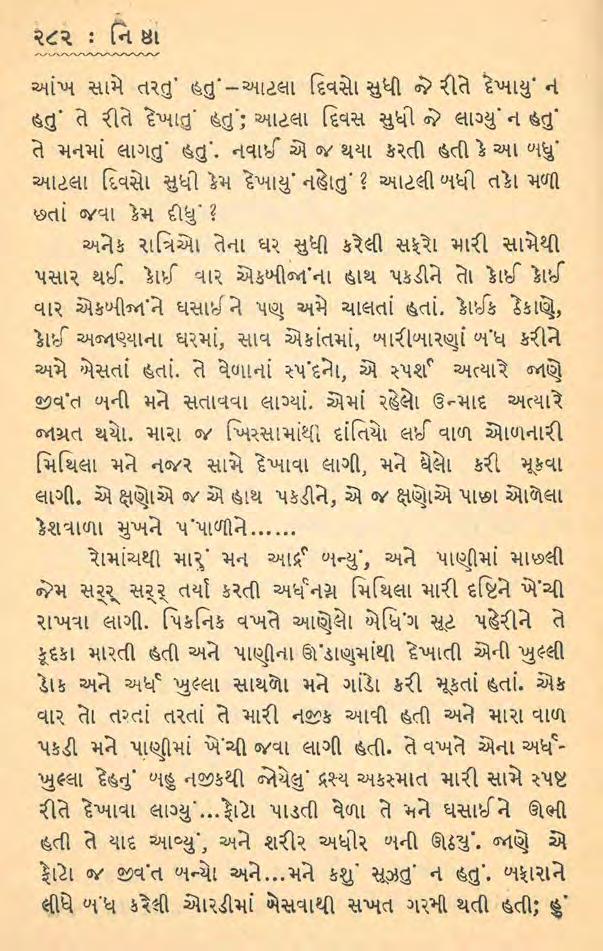 ૨૮૨ : નિષ્ઠા
આંખ સામે તરતું હતું–આટલા દિવસો સુધી જે રીતે દેખાયું ન
હતું તે રીતે દેખાતું હતું; આટલા દિવસ સુધી જે લાગ્યું ન હતું
તે મનમાં લાગતું હતું. નવાઈ એ જ થયા કરતી હતી કે આ બધું
આટલા દિવસો સુધી કેમ દેખાયું નહોતું ? આટલી બધી તકો મળી
છતાં જવા કેમ દીધું ?
અનેક રાત્રિઓ તેના ઘર સુધી કરેલી સફરો મારી સામેથી
પસાર થઈ. કોઈ વાર એકબીજાંના હાથ પકડીને તો કોઈ કોઈ
વાર એકબીજાંને ઘસાઈને પણ અમે ચાલતાં હતાં. કોઈક ઠેકાણે,
કોઈ અજાણ્યાના ઘરમાં, સાવ એકાંતમાં, બારીબારણાં બંધ કરીને
અમે બેસતાં હતાં. તે વેળાનાં સ્પંદનો, એ સ્પર્શ અત્યારે જાણે
જીવંત બની મને સતાવવા લાગ્યાં. એમાં રહેલો ઉન્માદ અત્યારે
જાગ્રત થયો. મારા જ ખિસ્સામાંથી દાંતિયો લઈ વાળ ઓળનારી
મિથિલા મને નજર સામે દેખાવા લાગી, મને ઘેલો કરી મૂકવા
લાગી. એ ક્ષણોએ જ એ હાથ પકડીને, એ જ ક્ષણોએ પાછા ઓળેલા
કેશવાળા મુખને પંપાળીને......
રોમાંચથી મારું મન આર્દ્ર બન્યું, અને પાણીમાં માછલી
જેમ સરર્ સરર્ તર્યા કરતી અર્ધનગ્ન મિથિલા મારી દૃષ્ટિને ખેંચી
રાખવા લાગી. પિકનિક વખતે આણેલો બેધિંગ સૂટ પહેરીને તે
કૂદકા મારતી હતી અને પાણીના ઊંડાણમાંથી દેખાતી એની ખુલ્લી
ડોક અને અર્ધ ખુલ્લા સાથળો મને ગાંડો કરી મૂકતાં હતાં. એક
વાર તો તરતાં તરતાં તે મારી નજીક આવી હતી અને મારા વાળ
પકડી મને પાણીમાં ખેંચી જવા લાગી હતી. તે વખતે એના અર્ધ-
ખુલ્લા દેહનું બહુ નજીકથી જોયેલું દ્રશ્ય અકસ્માત મારી સામે સ્પષ્ટ
રીતે દેખાવા લાગ્યું...ફોટો પાડતી વેળા તે મને ઘસાઈને ઊભી
હતી તે યાદ આવ્યું, અને શરીર અધીર બની ઊઠયું. જાણે એ
ફોટો જ જીવંત બન્યો અને...મને કશું સૂઝતું ન હતું. બફારાને
લીધે બંધ કરેલી ઓરડીમાં બેસવાથી સખત ગરમી થતી હતી; હું